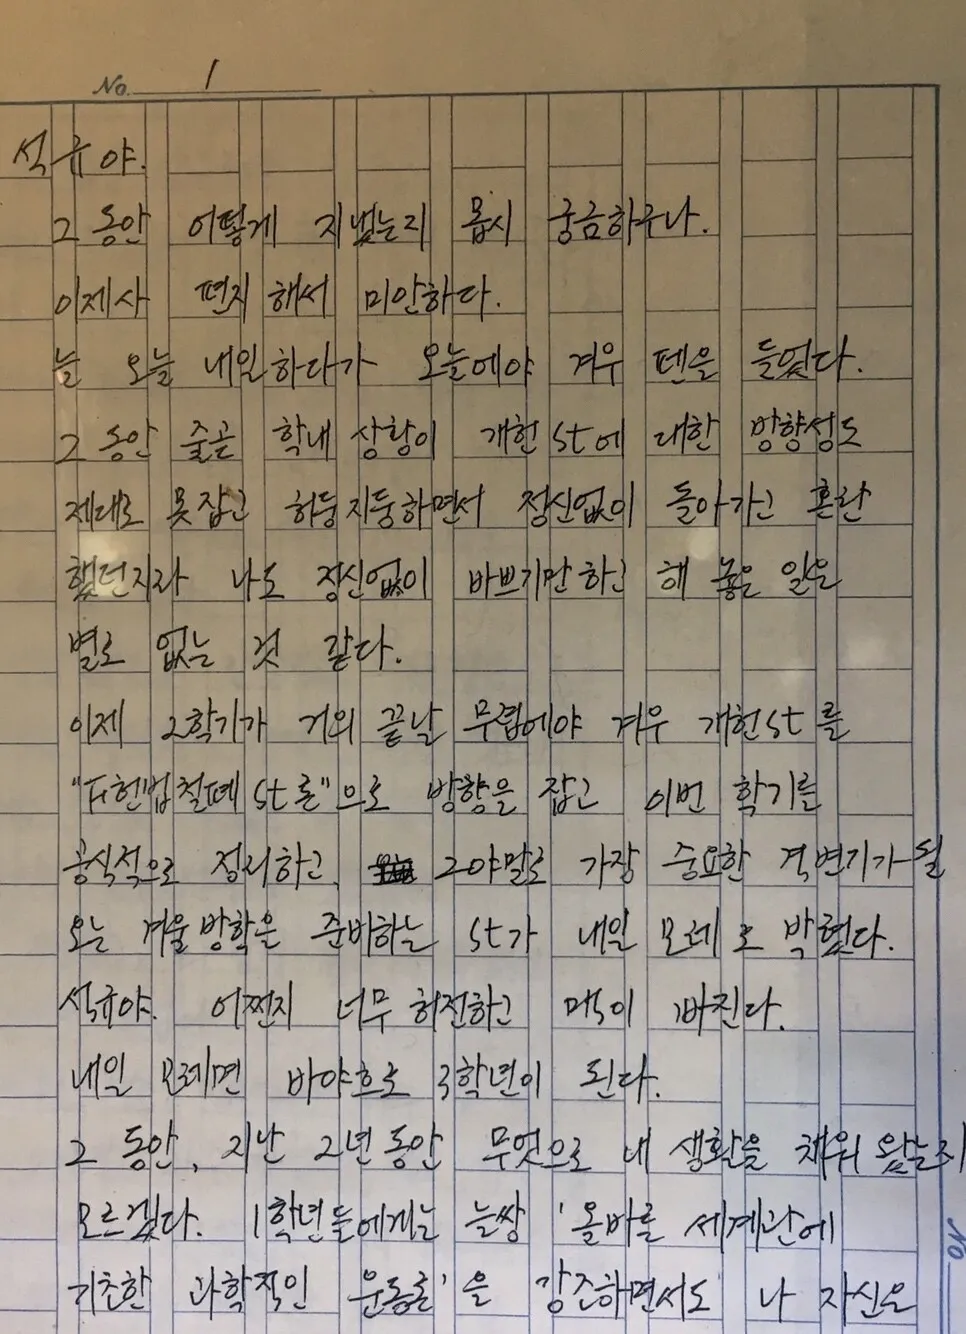 No. 1
석규야.
그동안 어떻게 지냈는지 몹시 궁금하구나.
이제사 편지해서 미안하다.
늘 오늘 내일하다가 오늘에야 겨우 펜을 들었다.
그동안 줄곧 학내 상황이 개헌 st에 대한 방향성도
제대로 못잡고 허둥지둥하면서 정신없이 돌아가고 혼란
했던지라 나도 정신없이 바쁘기만하고 해 놓은 일은
별로 없는 것 같다.
이제 2학기가 거의 끝날 무렵에야 겨우 개헌st를
헌법철폐 st론"으로 방향을 잡고 이번 학기를
공식적으로 정리하고, 그야말로 가장 중요한 격변기가 될
오는 겨울방학을 준비하는 st가 내일 모레로 박혔다.
석규야. 어쩐지 너무 허전하고 맥이 빠진다.
내일 모레면 바야흐로 3학년이 된다.
그 동안, 지난 2년동안 무엇으로 내 생활을 채워 왔는지
모르겠다. 1학년들에게는 늘쌍 '올바른 세계관에
기초한 과학적인 운동론'을 강조하면서도 나 자신은
No.